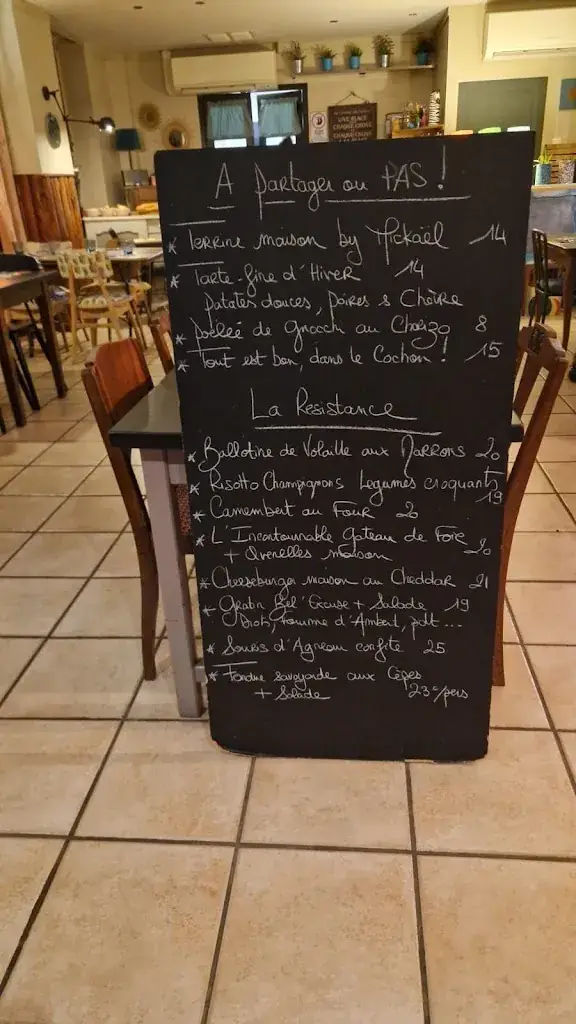 A Partager ou PAS !
* Terrine maison by Mickaël 14
* Tarte fine d'Hiver 14
Patates douces, Poires & Chèvre
* Poêlée de gnocch au Chorizo 8
* Tout est bon, dans le Cochon ! 15
La Resistance
* Ballotine de Volaille aux Marrons 20
* Risotto Champignons Legumes croquants
19
* Camembert au Four 20
* L'Incontournable Gateau de Foie
+ Quenelles maison 20
* Cheeseburger maison au Cheddar 21
* Gratin Bel' Creuse + Salade 19
Diots, Fourme d'Ambert, pdt ...
* Souris d'Agneau confite 25
* Fondue savoyarde aux Cèpes
+ Salade 23€/pers